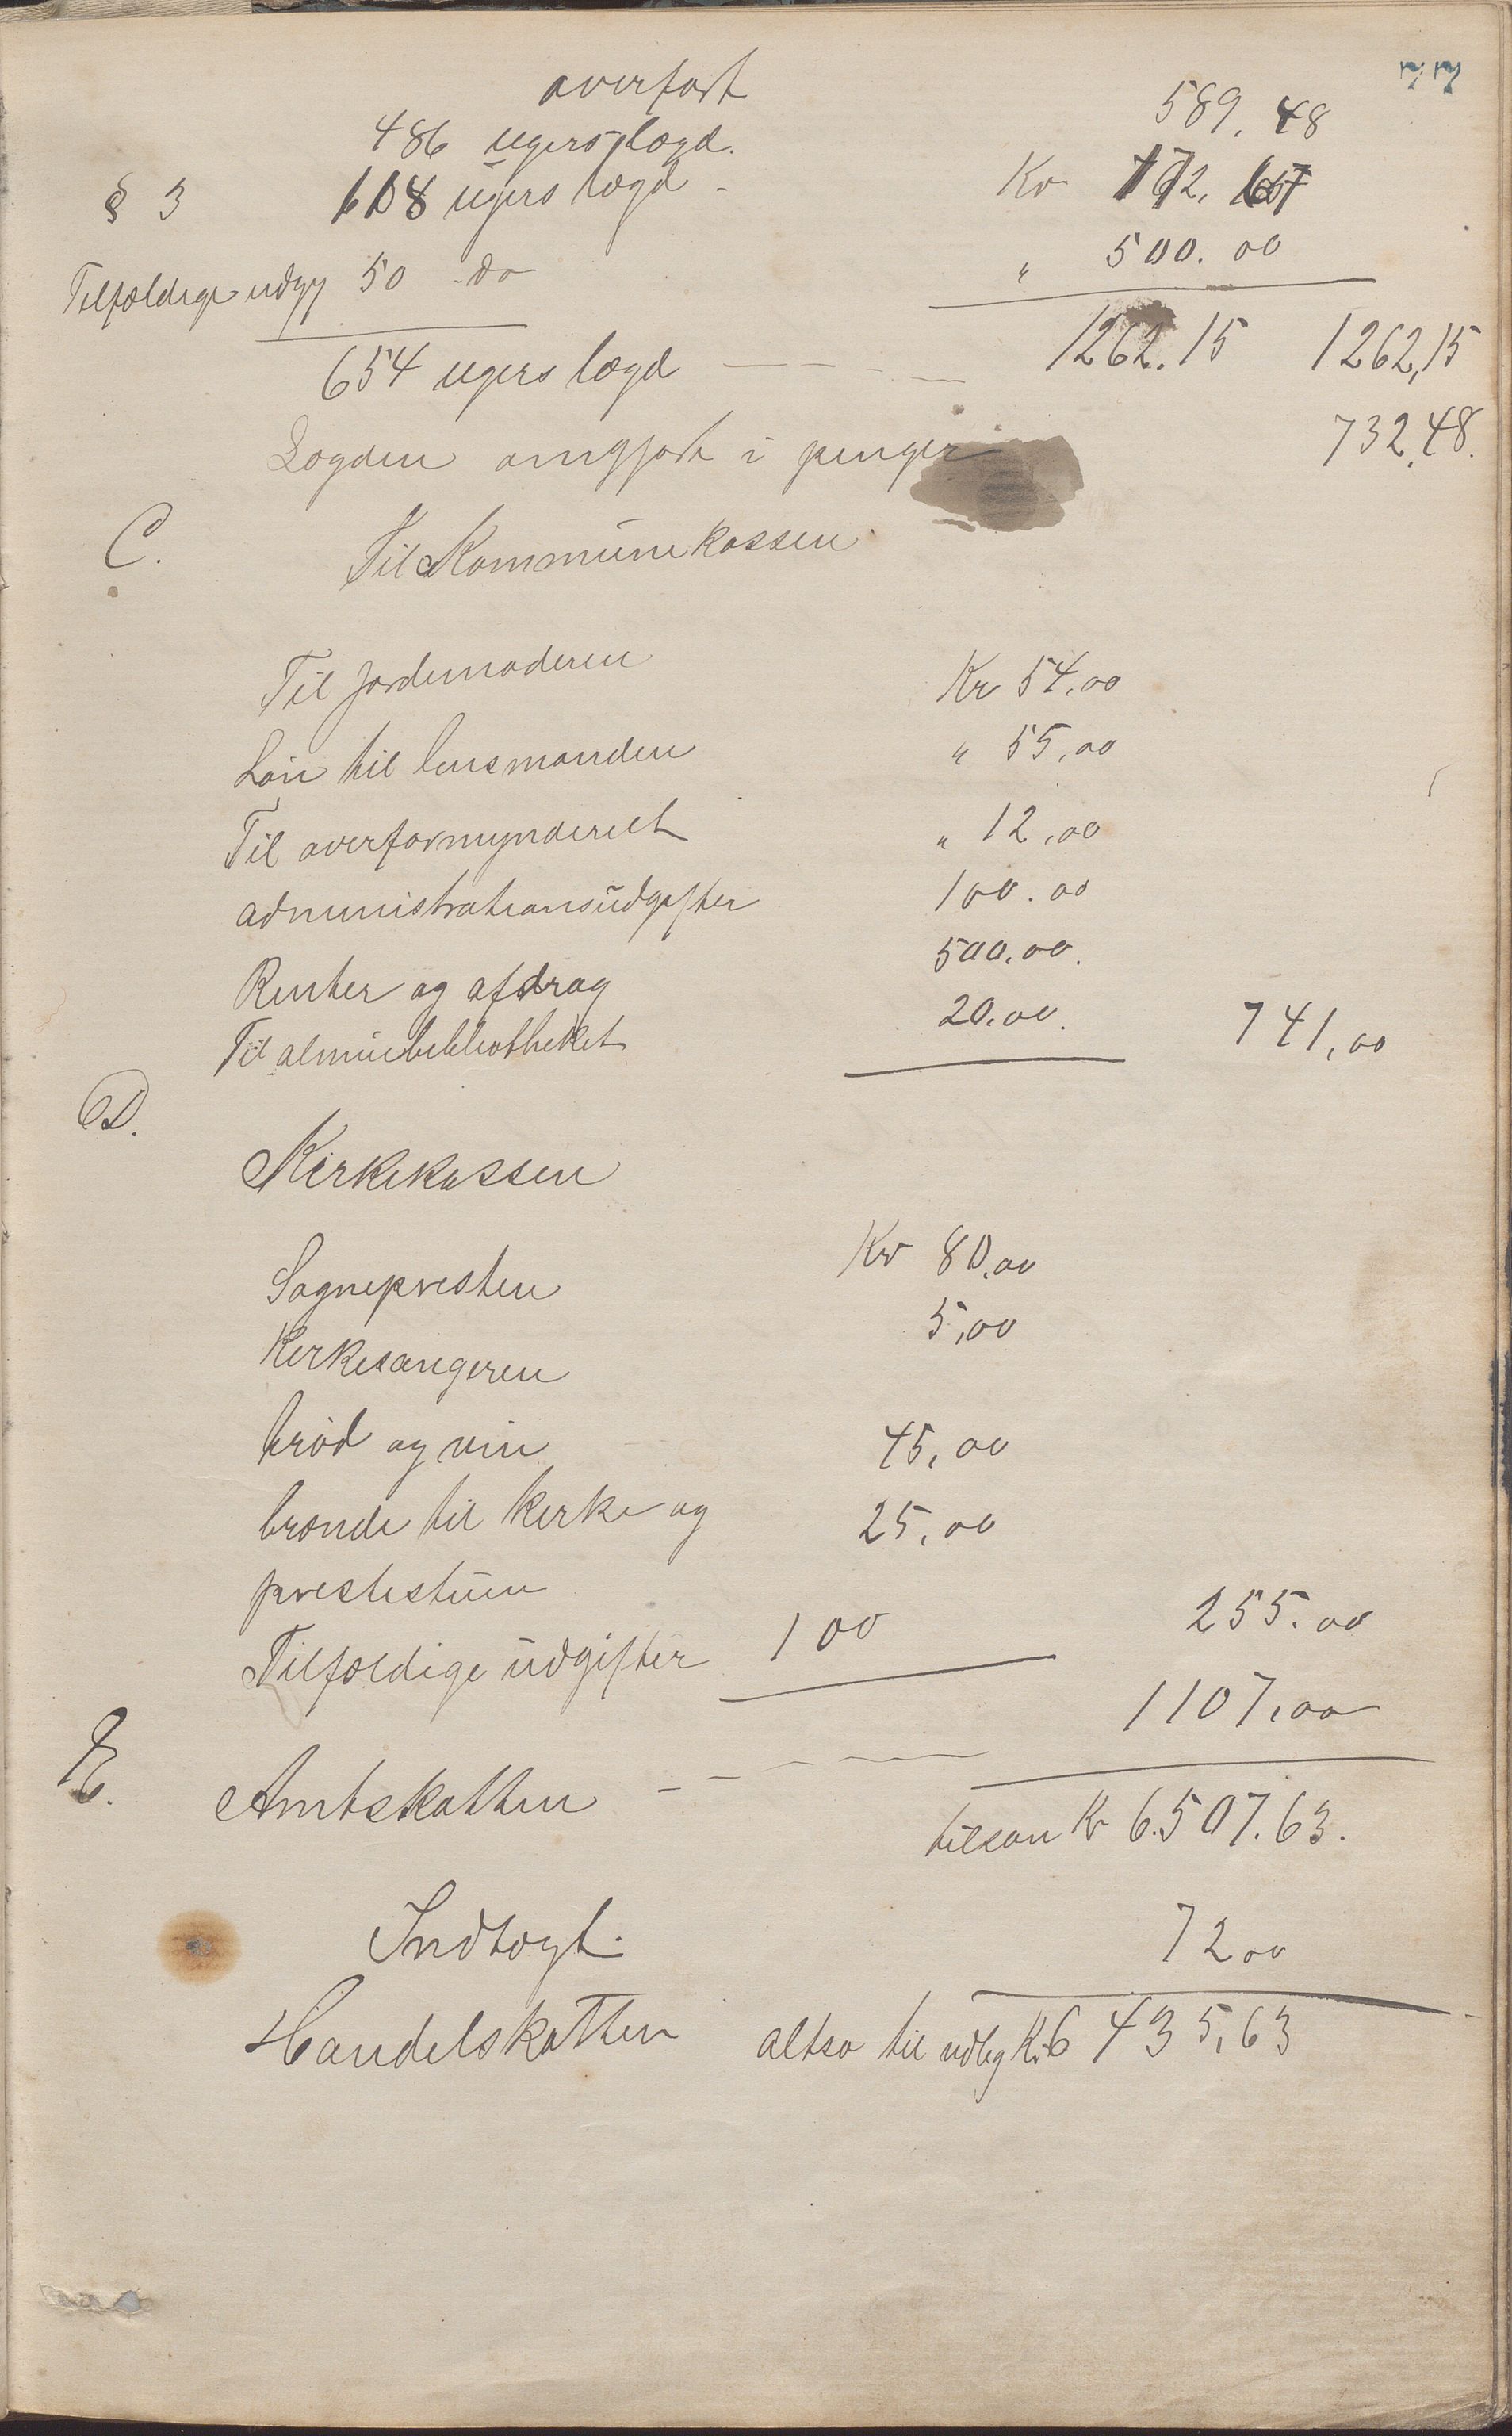 overført 589.48
486 ugers lægd.
§ 3 118 ugers lægd - Kr 172,67
Tilfældige udgg 50 do " 500.00
654 ugers lægd - - - - 1262.15 1262,15
Lægden omgjort i penger 732,48.
C. Til Kommunekassen
Til jordemoderen Kr 54,00
Løn til lensmanden " 55,00
Til overformynderiet " 12,00
administrationsudgifter 100.00
Renter og afdrag 500,00.
Til almuebibliotheket 20,00. 741,00
D.
Kirkekassen
Sognepresten Kr 80,00
Kirkesangeren 5,00
brød og vin 45,00
brænde til kirke og 25,00
prestestuen
Tilfældige udgifter 100 255.00
E. Amtskatten - - - - 1107,00
tilsam Kr 6.507.63.
Indtægt.
Handelskatten 72 00
altsa til udlig Kr 6435,63